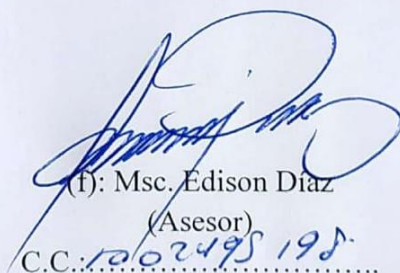 (f): Msc. Edison Díaz
(Asesor)
C.C.:1002495198.